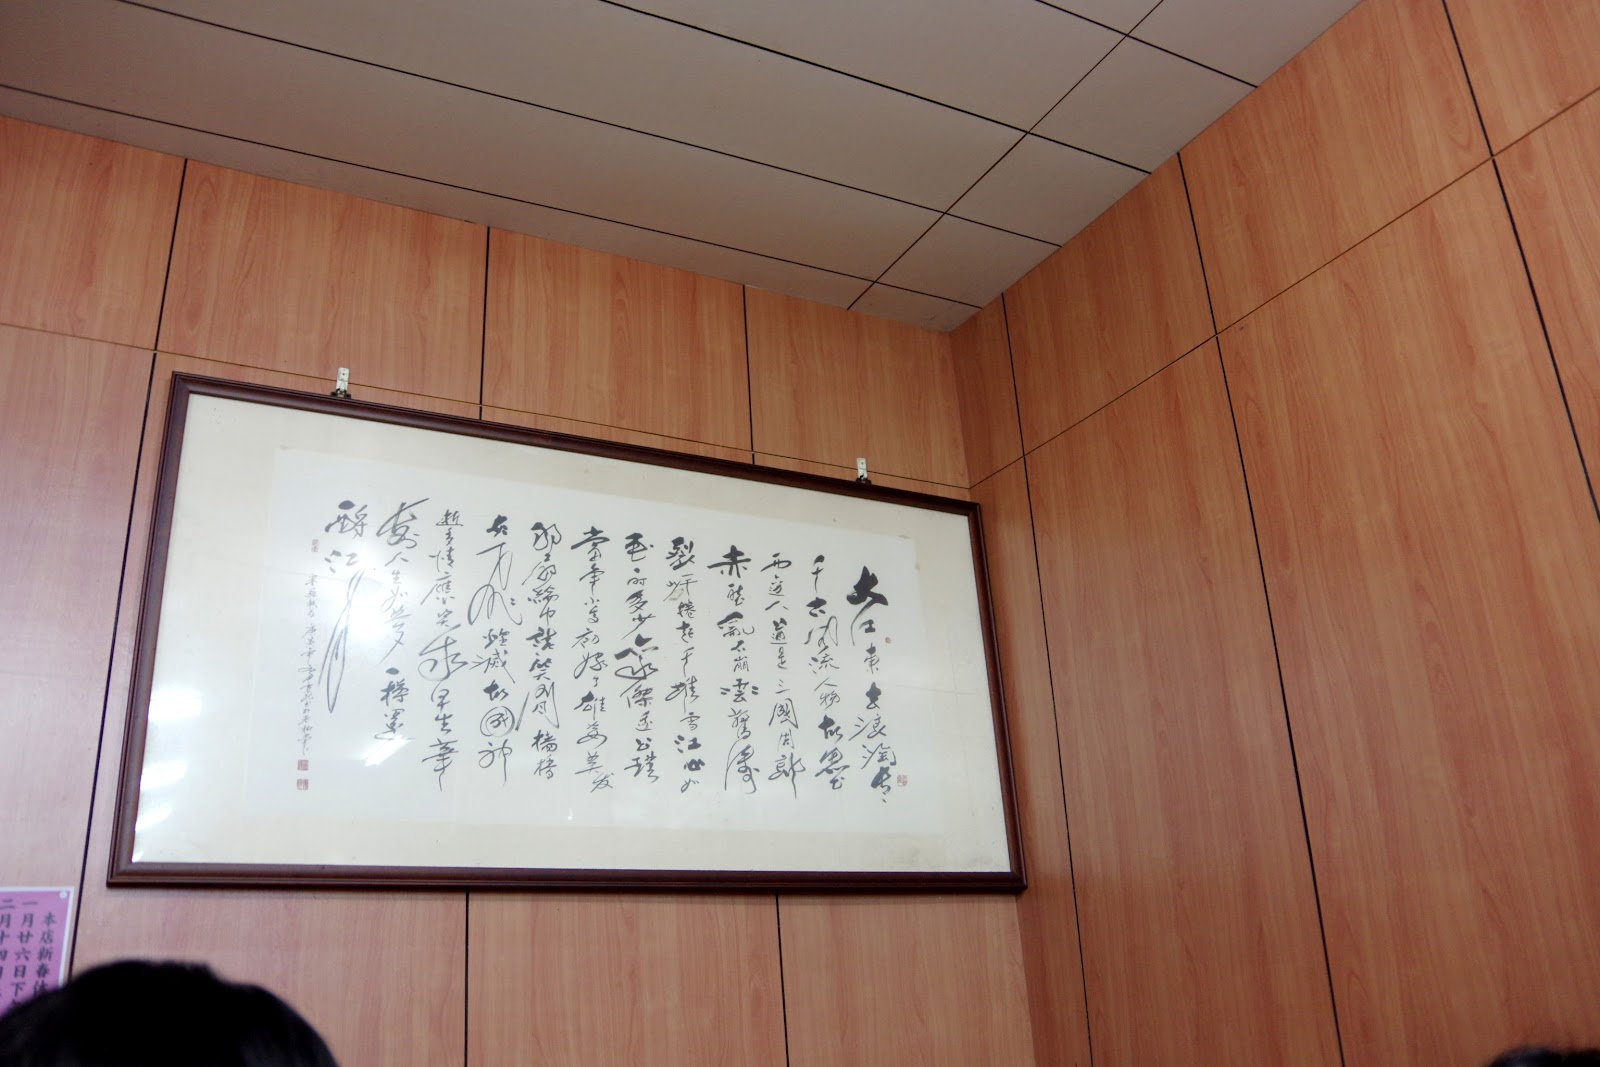 大江東去浪淘盡
千古風流人物故壘
西邊人道是三國周郎
赤壁亂石崩雲驚濤
裂岸捲起千堆雪江山如
畫一時多少豪傑遙公瑾
當年小喬初嫁了雄姿英发
羽扇綸巾談笑間檣櫓
灰飛煙滅故國神
遊多情應笑我早生華
髮人生如夢一樽還
酹江月
本店新春休
一月廿六日下午
二月十四日